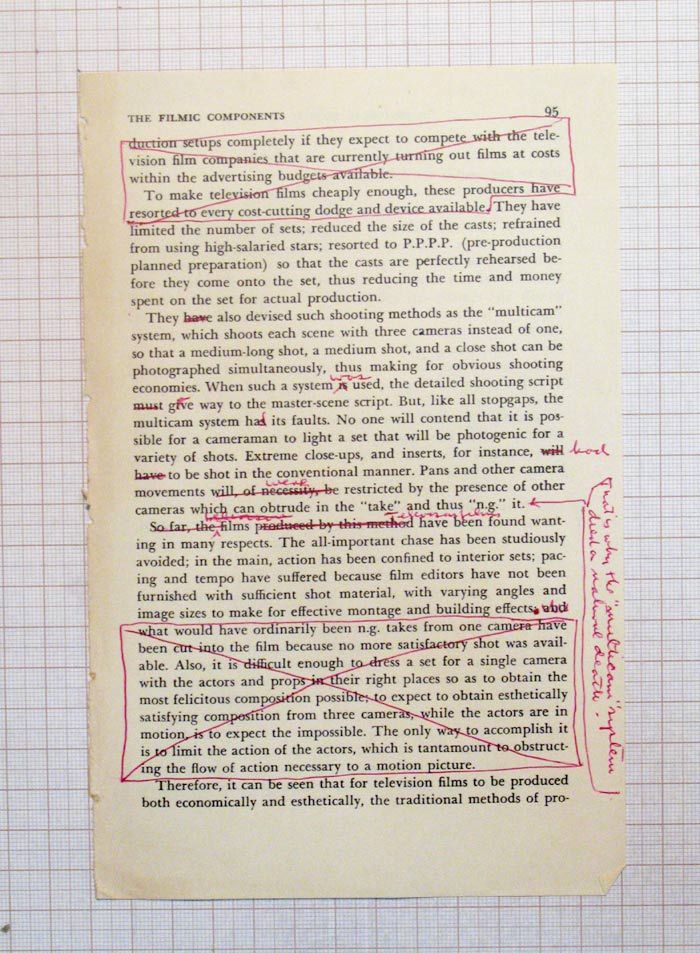 THE FILMIC COMPONENTS 95
duction setups completely if they expect to compete with the tele-
vision film companies that are currently turning out films at costs
within the advertising budgets available.
To make television films cheaply enough, these producers have
resorted to every cost-cutting dodge and device available. They have
limited the number of sets; reduced the size of the casts; refrained
from using high-salaried stars; resorted to P.P.P.P. (pre-production
planned preparation) so that the casts are perfectly rehearsed be-
fore they come onto the set, thus reducing the time and money
spent on the set for actual production.
They have also devised such shooting methods as the "multicam"
system, which shoots each scene with three cameras instead of one,
so that a medium-long shot, a medium shot, and a close shot can be
photographed simultaneously, thus making for obvious shooting
was
economies. When such a system is used, the detailed shooting script
must give way to the master-scene script. But, like all stopgaps, the
multicam system had its faults. No one will contend that it is pos-
sible for a cameraman to light a set that will be photogenic for a
variety of shots. Extreme close-ups, and inserts, for instance, will had
have to be shot in the conventional manner. Pans and other camera
were
movements will, of necessity, be restricted by the presence of other
cameras which can obtrude in the "take" and thus "n.g." it.
So far, the films produced by this method have been found want-
ing in many respects. The all-important chase has been studiously
avoided; in the main, action has been confined to interior sets; pac-
ing and tempo have suffered because film editors have not been
furnished with sufficient shot material, with varying angles and
image sizes to make for effective montage and building effects; and
what would have ordinarily been n.g. takes from one camera have
been cut into the film because no more satisfactory shot was avail-
able. Also, it is difficult enough to dress a set for a single camera
with the actors and props in their right places so as to obtain the
most felicitous composition possible; to expect to obtain esthetically
satisfying composition from three cameras, while the actors are in
motion, is to expect the impossible. The only way to accomplish it
is to limit the action of the actors, which is tantamount to obstruct-
ing the flow of action necessary to a motion picture.
Therefore, it can be seen that for television films to be produced
both economically and esthetically, the traditional methods of pro-
That is why the "multicam" system
died a natural death.